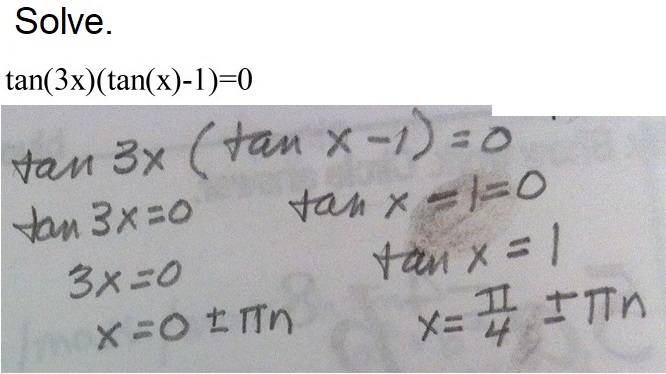 Solve.
tan(3x)(tan(x)-1)=0
tan 3x (tan x -1) = 0
tan 3x = 0 tan x - 1 = 0
3x = 0 tan x = 1
x = 0 ± πn x = π/4 ± πn